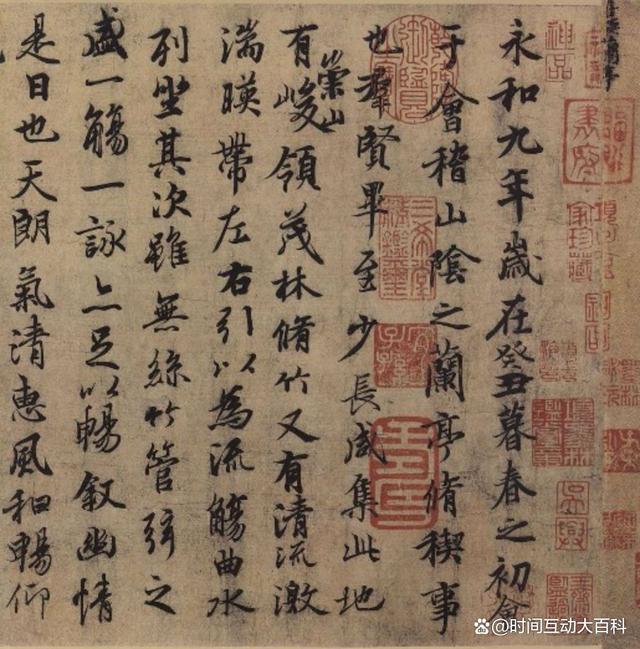 永和九年歲在癸丑暮春之初會
于會稽山陰之蘭亭脩稧事
也羣賢畢至少長咸集此地
有崇山峻領茂林脩竹又有清流激
湍暎帶左右引以為流觴曲水
列坐其次雖無絲竹管弦之
盛一觴一詠亦足以暢敘幽情
是日也天朗氣清惠風和暢仰
神品
三希堂精鑑璽
宜子孫
@时间互动大百科